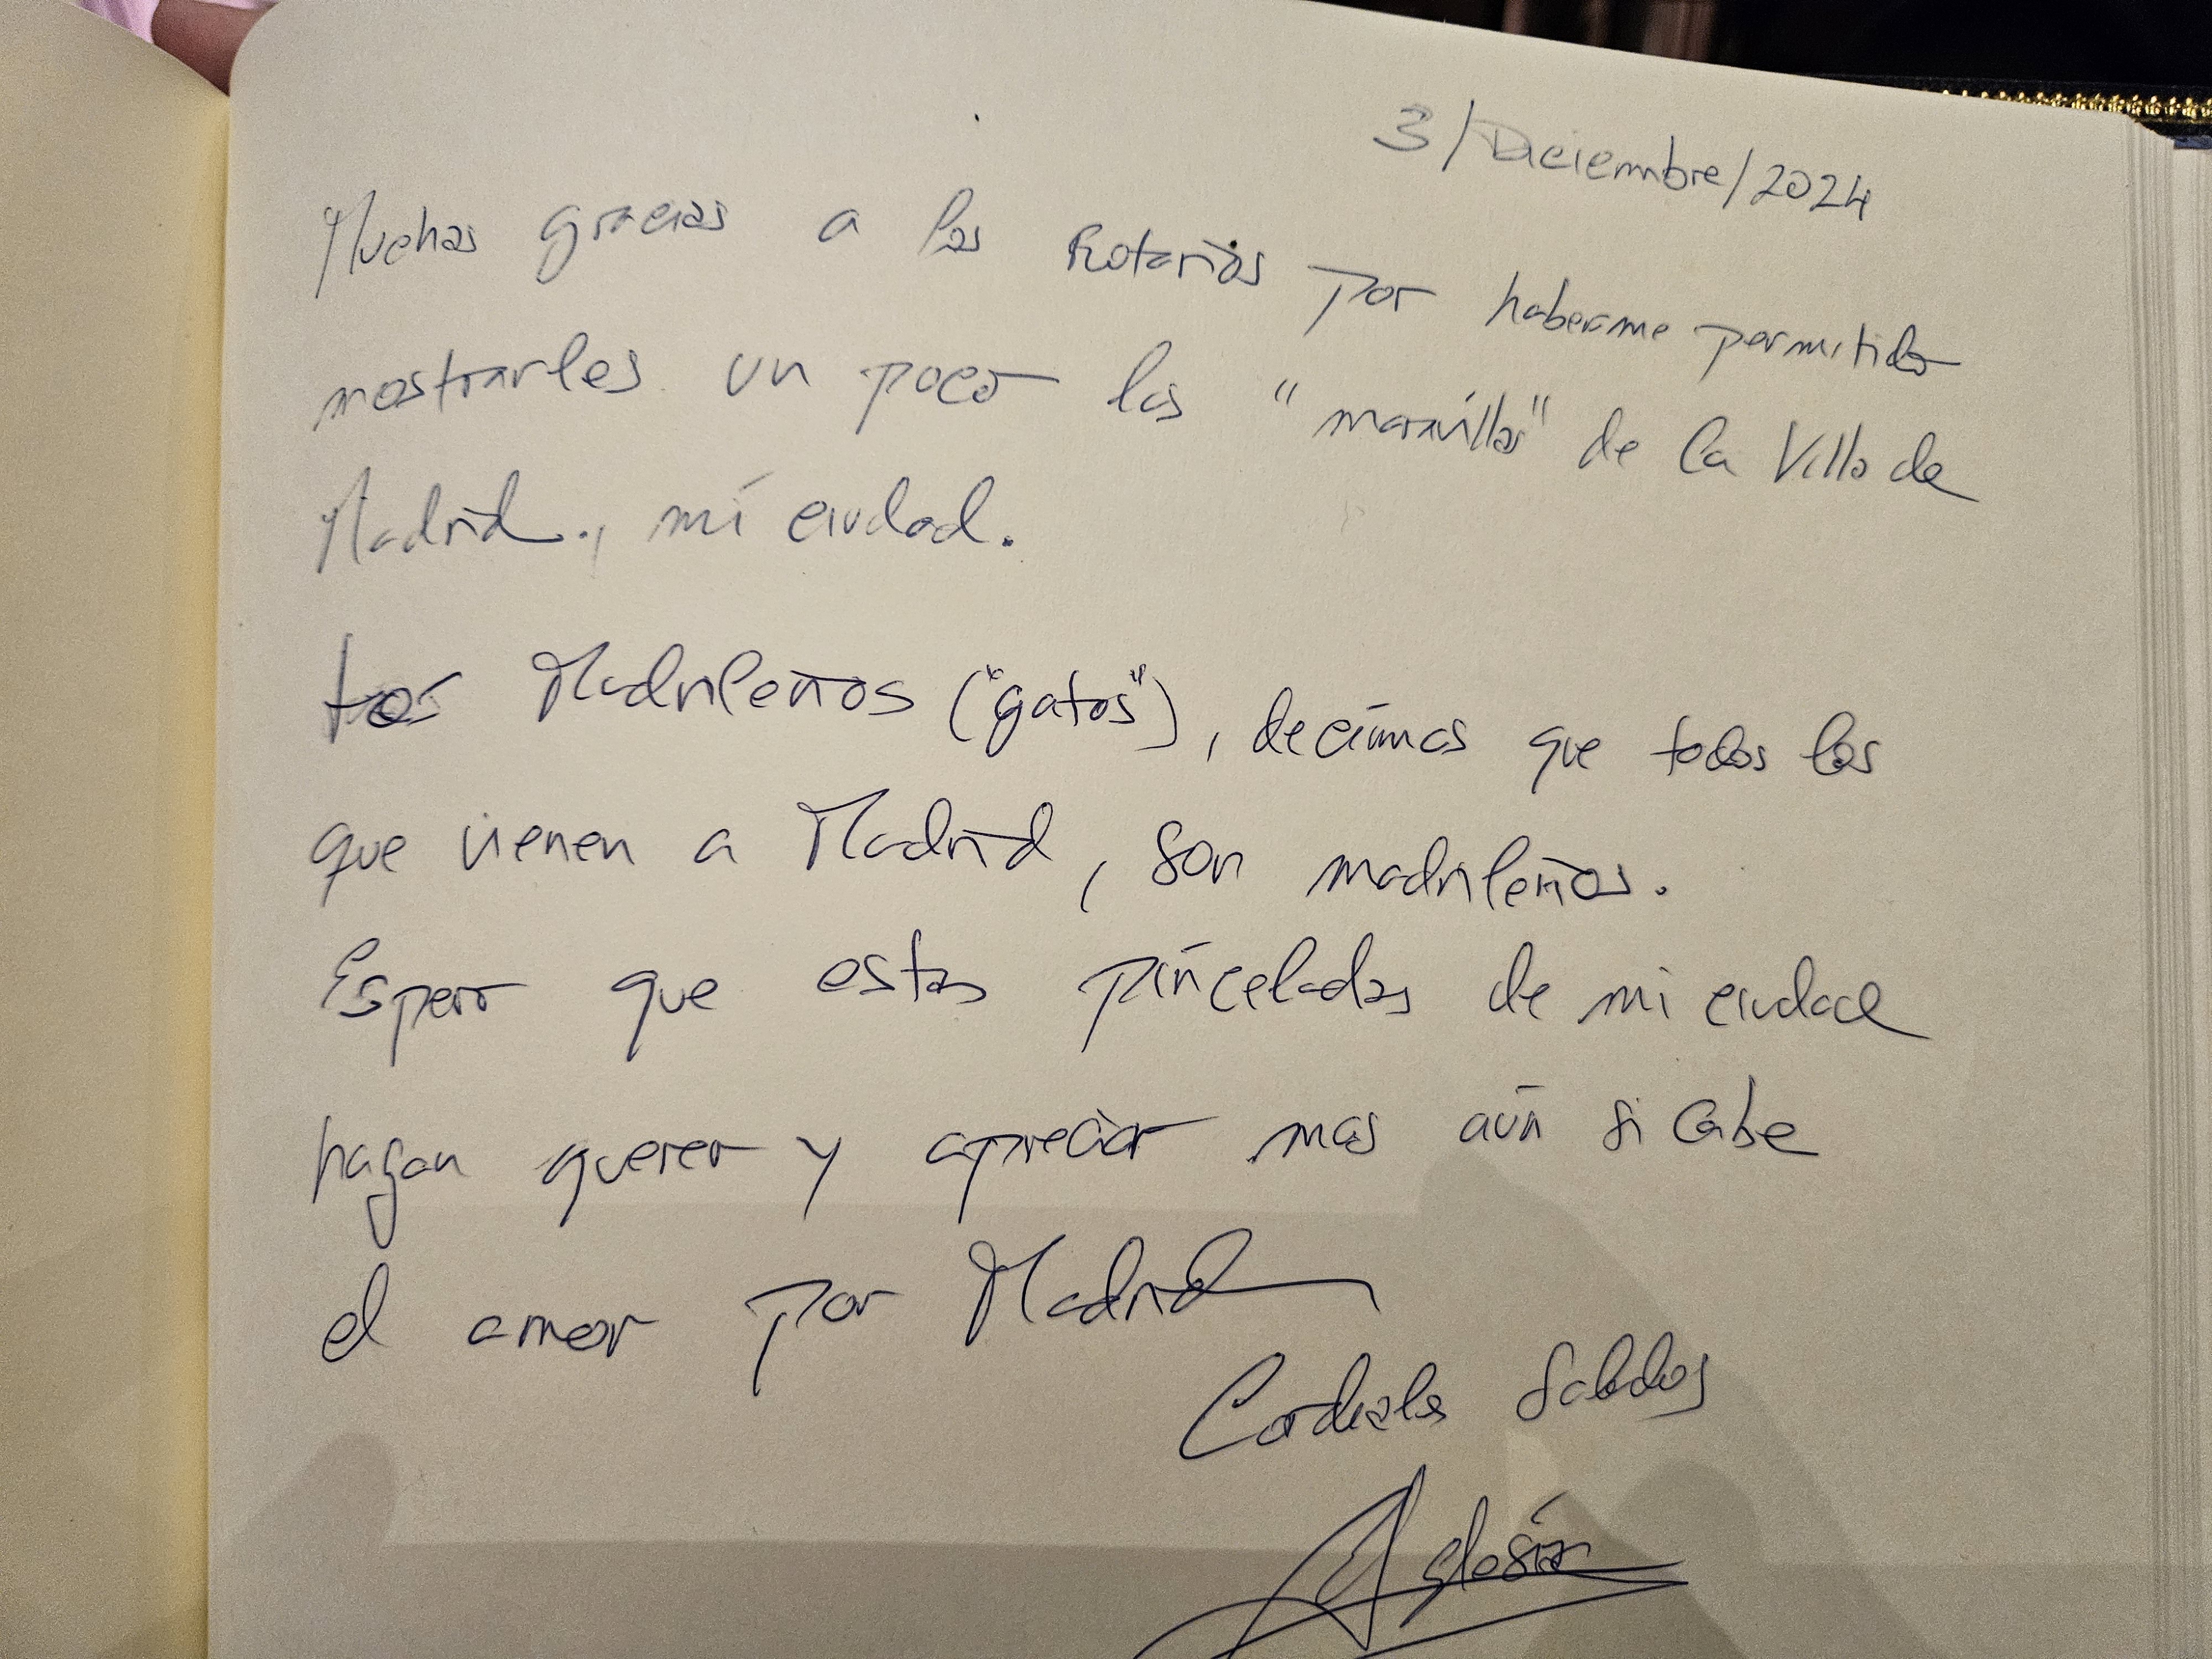 3/Diciembre/2024
Muchas gracias a los Rotarios por haberme permitido
mostrarles un poco las "maravillas" de la Villa de
Madrid., mi ciudad.
Los Madrileños ("gatos"), decimos que todos los
que vienen a Madrid, son madrileños.
Espero que estas pinceladas de mi ciudad
hagan querer y apreciar mas aún si cabe
el amor por Madrid
Cordiales Saludos